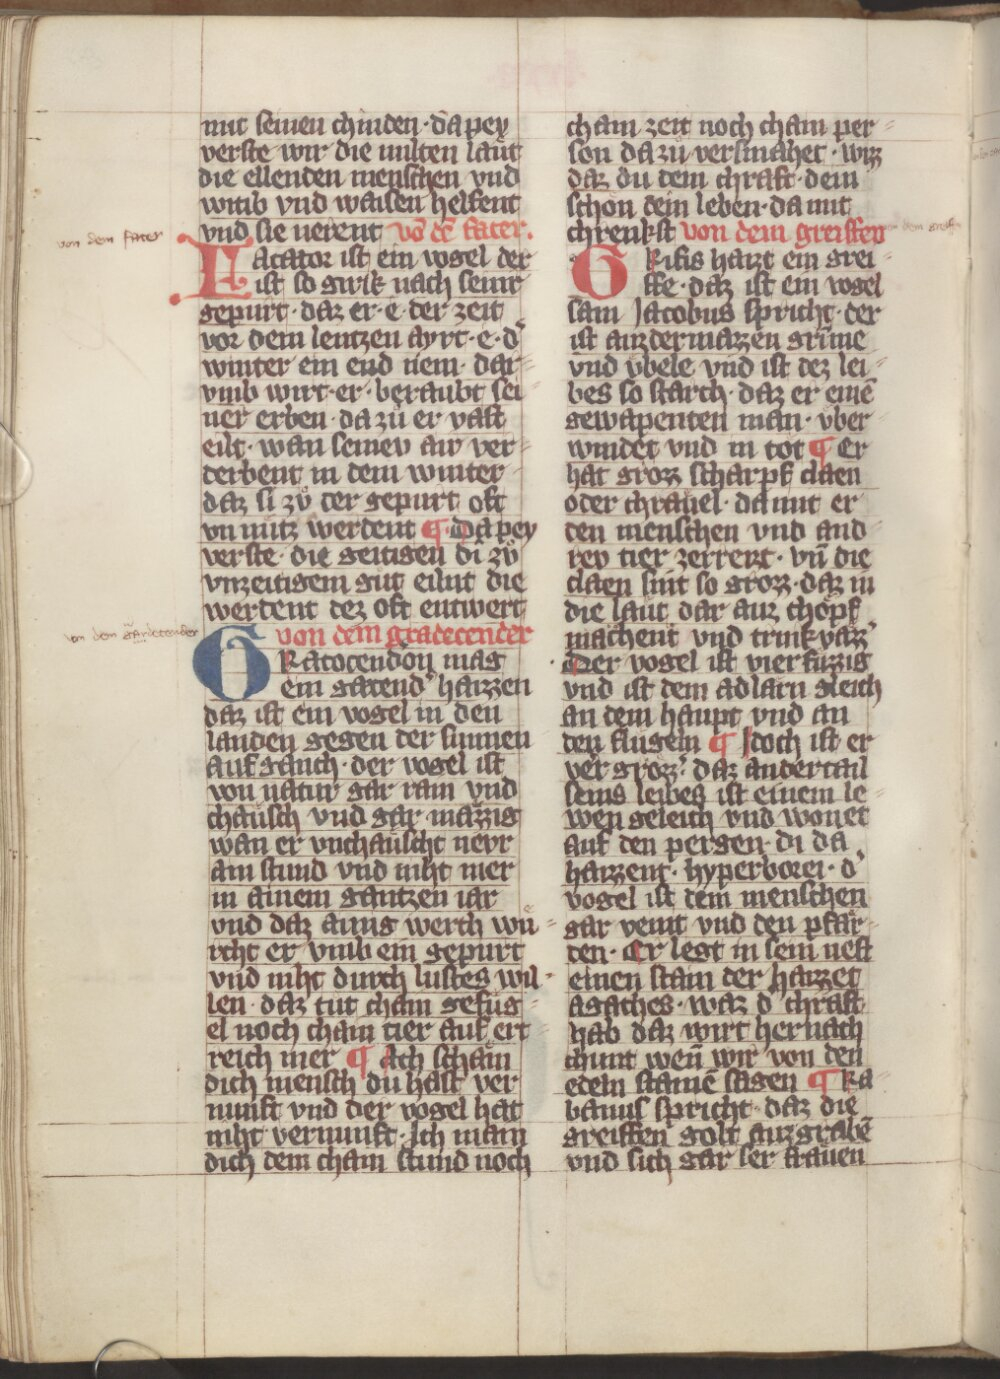 mit seinen chinden · da pey
verste wir die milten läut
die ellenden menschen vnd
witib vnd waisen helfent
vnd sie nerent vō dē fater.
von dem fater
Facator ist ein vogel der
ist so girik nach seinr
gepurt · daz er · e · der zeit
vor dem lentzen ayrt · e · d'
winter ein end nem · dar-
vmb wirt · er · beraubt sei
ner erben · da zů er vast
eilt · wan seinev air ver-
derbent in dem winter
daz si zů der gepurt oft
vnnütz werdent ¶ Da pey
verste · die geitigen di zů
vnzeitigem gut eilnt die
werdent dez oft entwert
von dem gradecender
von dem gardecender
Gratocendon mag
ein garend' haizzen
daz ist ein vogel in den
landen gegen der sunnen
aufganch · der vogel ist
von natur gar rain vnd
chäusch vnd gar mäzzig
wan er vnchäuscht nevr
ain stund vnd niht mer
in ainem gantzen iar
vnd daz ainig werch wü-
rcht er vmb ein gepurt
vnd niht durch lustes wil-
len · daz tut chain gefüg-
el noch chain tier auf ert
reich mer ¶ Ach scham
dich mensch du hast ver
nunft vnd der vogel hat
niht vernunft · Ich main
dich dem chain stund noch
chain zeit noch chain per-
son da zů versmahet · wizz
daz du dein chraft · dein
schön dein leben · da mit
chrenkst von dem greiffen
von dem greiffen
Grifis haizt ein grei-
ffe · daz ist ein vogel
sam Jacobus spricht · der
ist auzdermazzen grime
vnd vbele vnd ist dez lei-
bes so starch · daz er einē
gewapenten man · vber
windet vnd in tot ¶ Er
hat grozz scharpf claen
oder chräuel · da mit er
den menschen vnd and
rev tier zerrerzt · vn̄ die
claen sint so grozz · daz in
die läut dar auz chöpf
machent vnd trinkvaz
Der vogel ist vierfuzzig
vnd ist dem adlarn gleich
an dem haupt vnd an
den flügeln ¶ Jdoch ist er
ver grözz' daz andertail
seins leibes ist einem le-
wen geleich vnd wonet
auf den pergen · di da
haizzent · hyperborei · d'
vogel ist dem menschen
gar veint vnd den pfär-
den · Er legt in sein nest
einen stain der haizzet
agathes · waz d' chraft
hab daz wirt hernach
chunt wen̄ wir von den
edeln stainē sagen ¶ Ra
banus spricht · daz die
greiffen golt auzgrabē
vnd sich gar ser fräuen